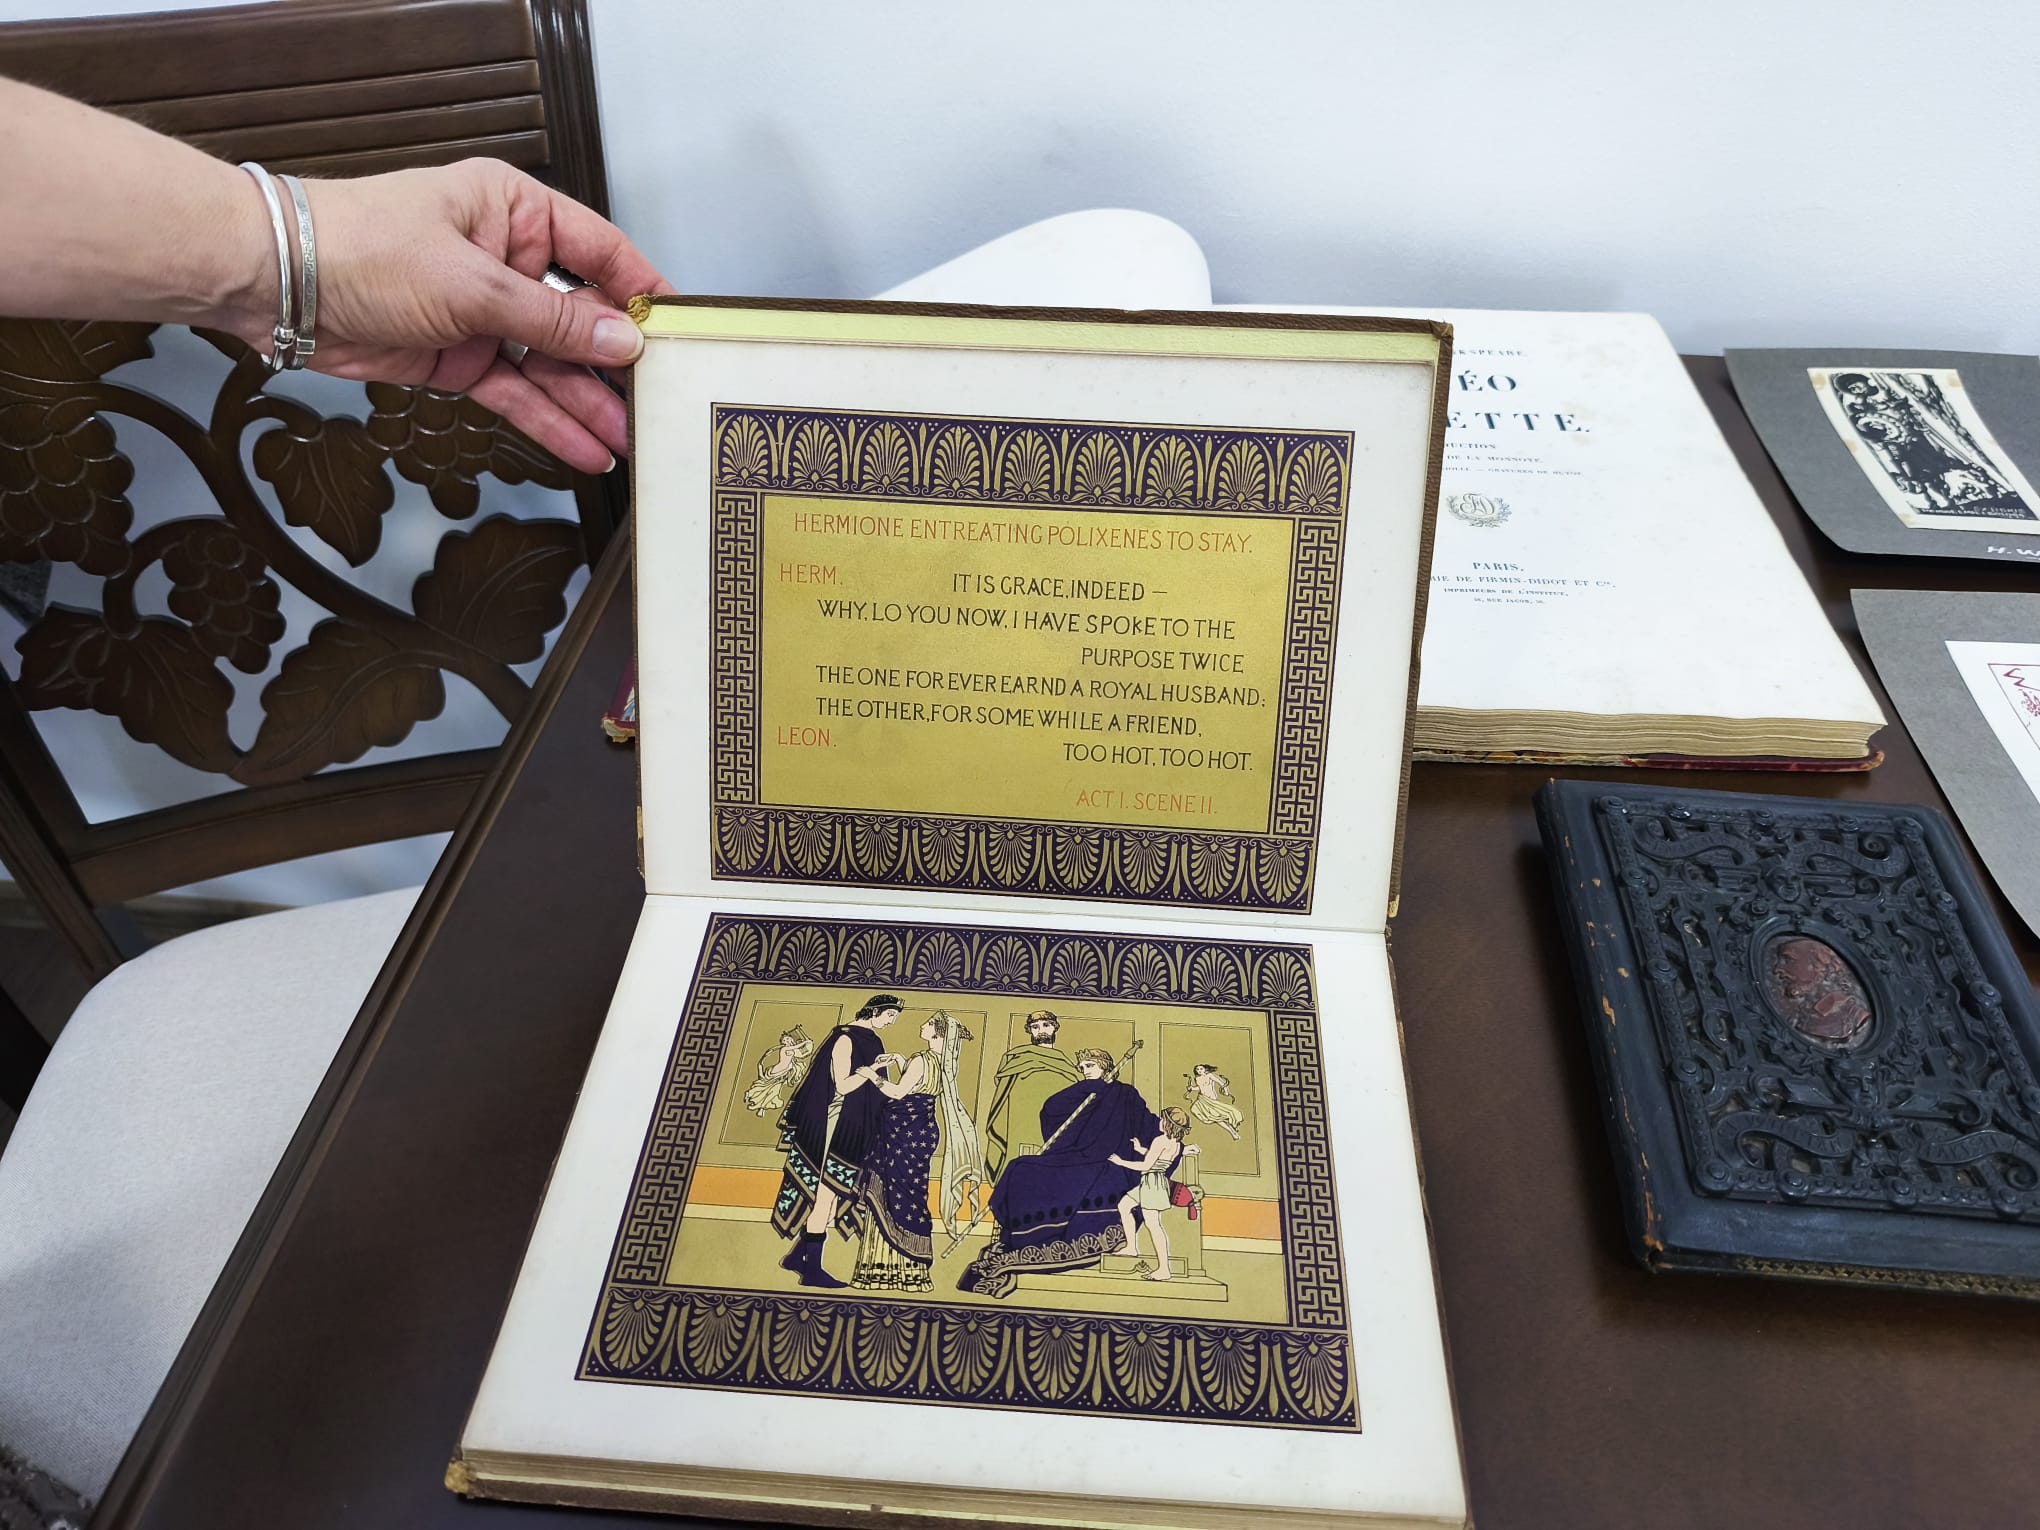 HERMIONE ENTREATING POLIXENES TO STAY.
HERM. IT IS GRACE, INDEED —
WHY, LO YOU NOW, I HAVE SPOKE TO THE
PURPOSE TWICE
THE ONE FOR EVER EARND A ROYAL HUSBAND;
THE OTHER, FOR SOME WHILE A FRIEND,
LEON. TOO HOT, TOO HOT.
ACT I. SCENE II.
KSPEARE
ÉO
ETTE.
UCTION
DE LA MONNOYE,
GRAVURES DE
PARIS,
RIE DE FIRMIN-DIDOT ET Cie,
IMPRIMEURS DE L'INSTITUT,
56, RUE JACOB, 56
H.W